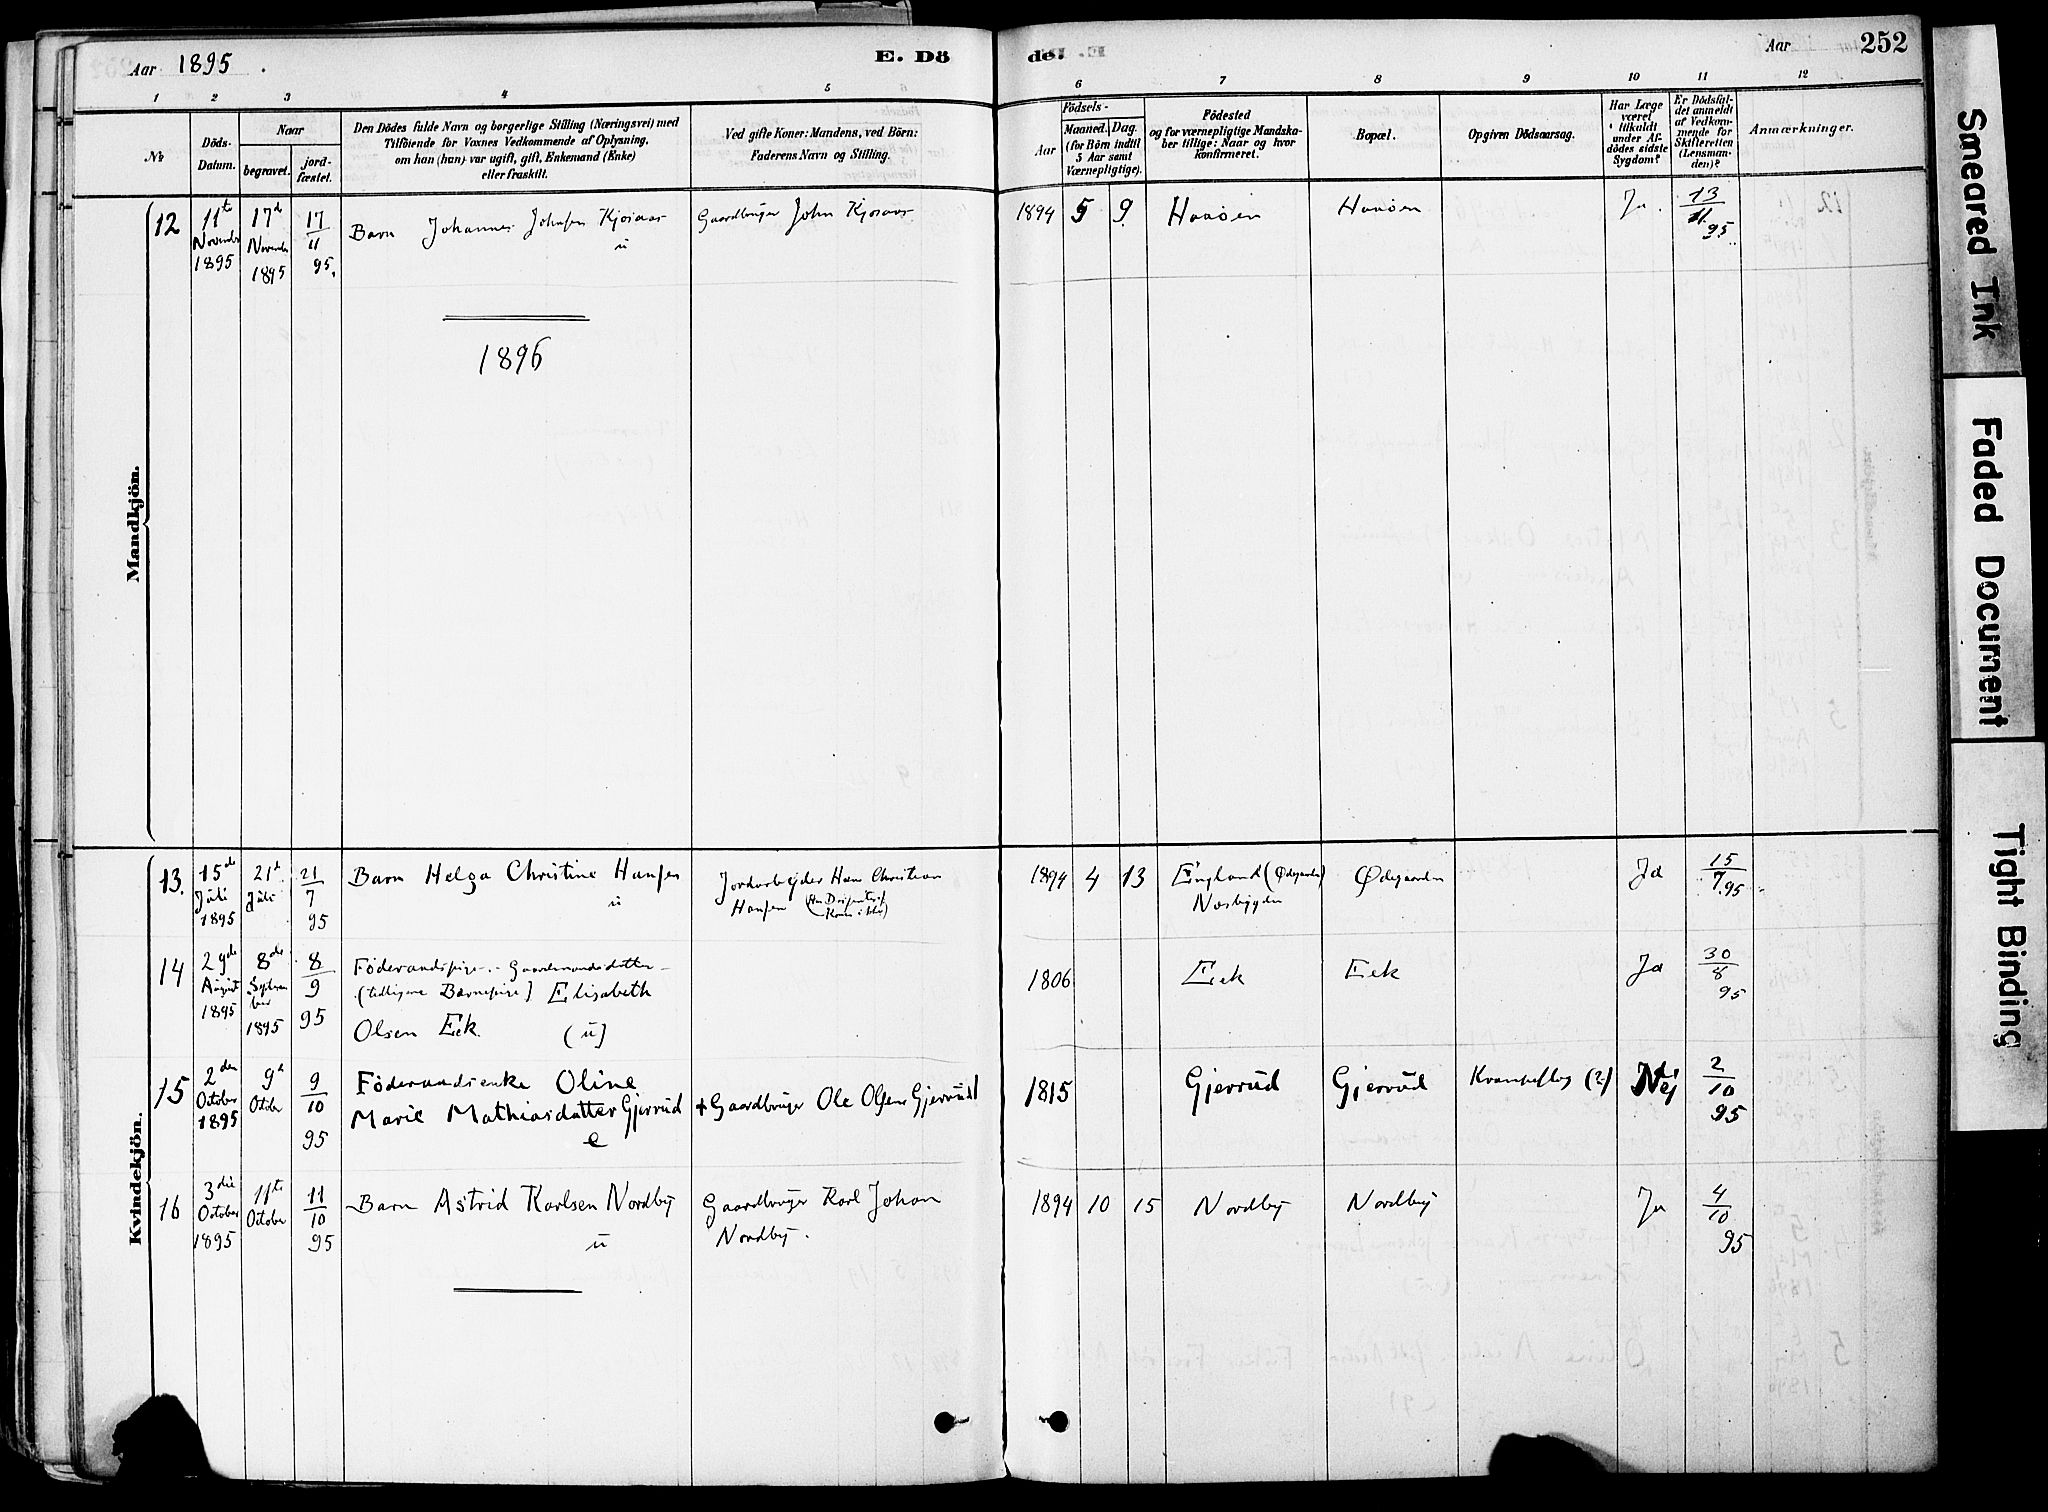 Aar 1895.
E. Dö
de.
Aar
252
1 2 3 4 5 6 7 8 9 10 11 12
No
Döds-
Datum.
Naar
begravet.
jord-
fæstet.
Den Dödes fulde Navn og borgerlige Stilling (Næringsvei) med
Tilföiende for Voxnes Vedkommende af Oplysning,
om han (hun) var ugift, gift, Enkemand (Enke)
eller fraskilt.
Ved gifte Koner: Mandens, ved Börn:
Faderens Navn og Stilling.
Födsels-
Aar
Maaned. Dag.
(for Börn indtil
5 Aar samt
Værnepligtige).
Födested
og for værnepligtige Mandska-
ber tillige: Naar og hvor
konfirmeret.
Bopæl.
Opgiven Dödsaarsag.
Har Læge
været
tilkaldt
under Af-
dödes sidste
Sygdom?
Er Dödsfal-
det anmeldt
af Vedkom-
mende for
Skifteretten
(Lensman-
den)?
Anmærkninger.
Mandkjön.
12
11te
November
1895
17d
Novembr
1895
17/11
95.
Barn Johannes Johnsen Kjosaas
u
Gaardbruger John Kjosaas
1894 5 9
Haaøen
Haaøen
Ja.
13/11 95
1896
Kvindekjön.
13.
15de
Juli
1895
21d
Juli
21/7
95
Barn Helga Christine Hansen
u
Jordarbejder Hans Christian
Hansen
1894 4 13
England (Ødegaarden)
Næsbygden
Ødegaarden
Ja
15/7 95
14
29de
August
1895
8de
Septem
ber
1895
8/9
95
Föderaadspige - Gaardmandsdatter -
(tidligere Barnepige) Elisabeth
Olsen Eek (u)
1806
Eek
Eek
Ja
30/8
95
15
2den
October
1895
9d
Octobr
9/10
95
Föderaadsenke Oline
Marie Mathiasdatter Gjerrud
e
+ Gaardbruger Ole Olsen Gjerrud
1815
Gjerrud
Gjerrud
(?)
Nej
2/10
95
16
3die
October
1895
11te
October
11/10
95
Barn Astrid Karlsen Nordby
u
Gaardbruger Karl Johan
Nordby.
1894 10 15
Nordby
Nordby
Ja
4/10
95
Smeared Ink
Faded Document
Tight Binding